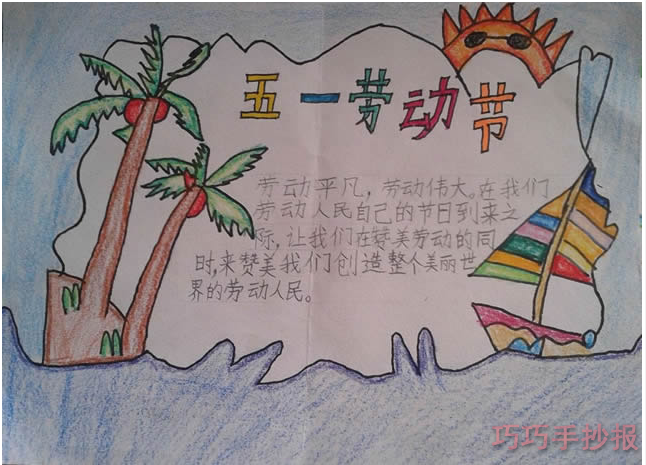 五一劳动节
劳动平凡，劳动伟大。在我们
劳动人民自己的节日到来之
际，让我们在赞美劳动的同
时，来赞美我们创造整个美丽世
界的劳动人民。
巧巧手抄报